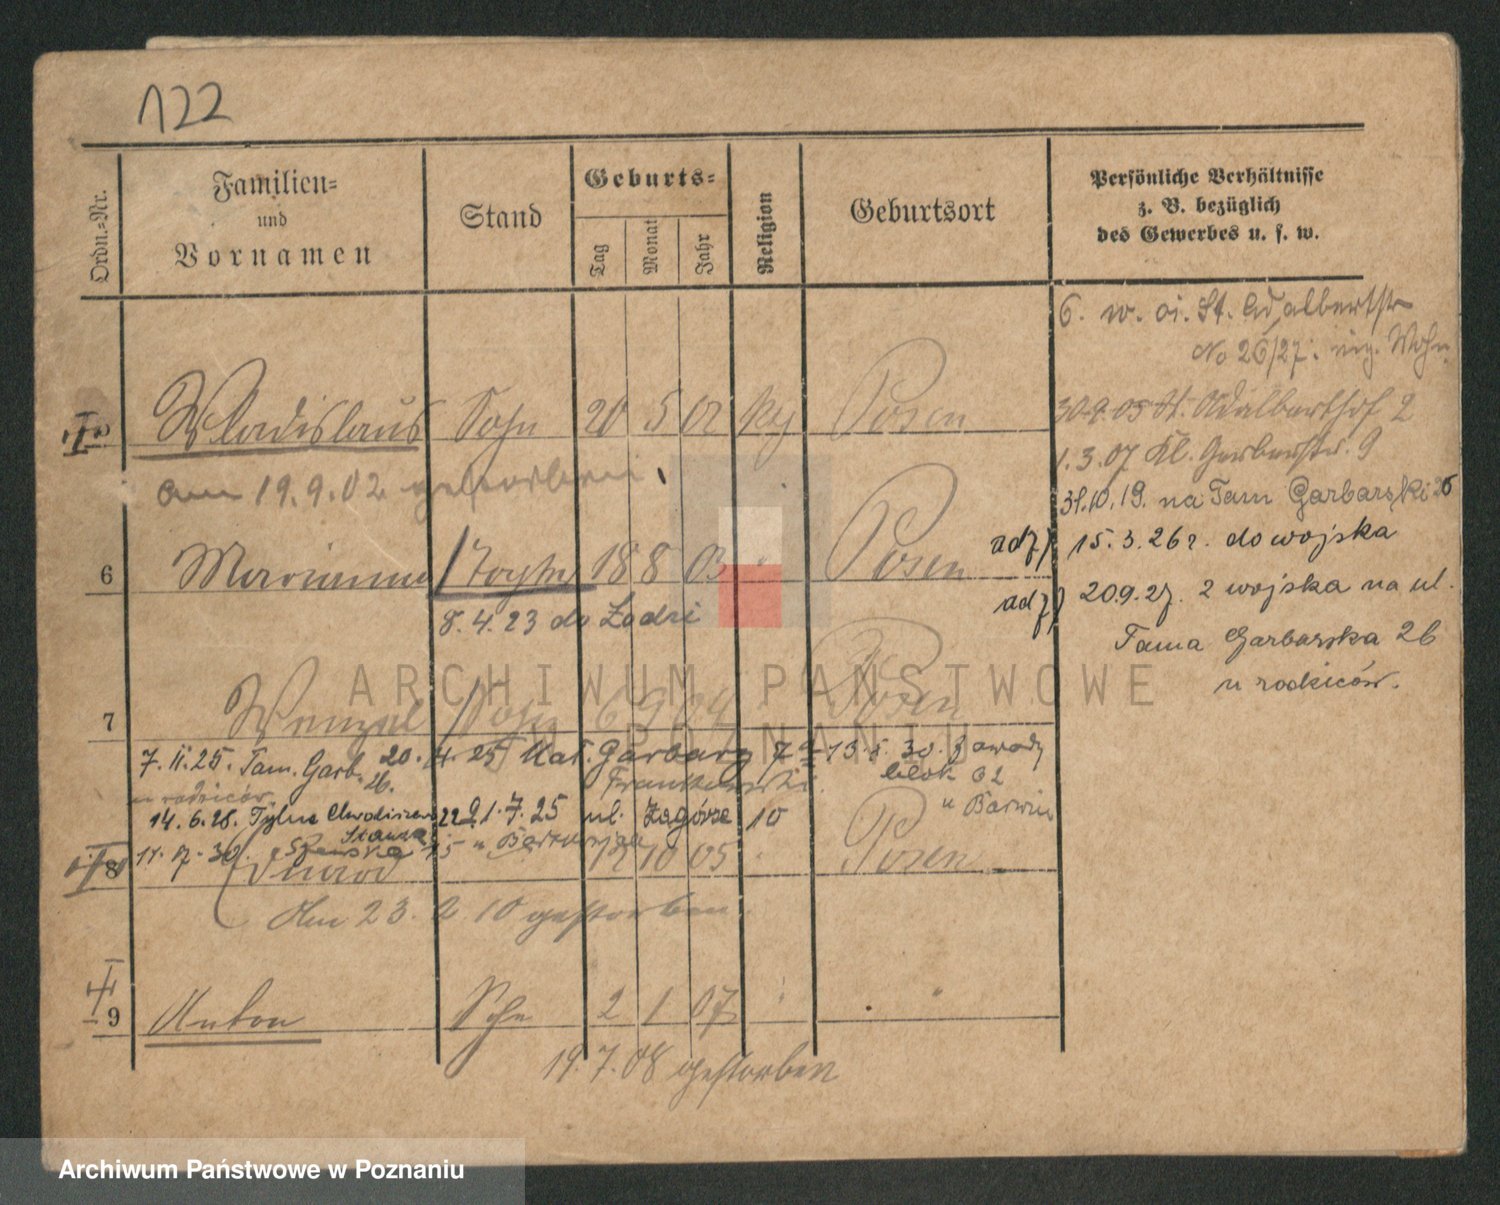 122
Ordn.-Nr.
Familien-
und
Vornamen
Stand
Geburts-
Tag
Monat
Jahr
Religion
Geburtsort
Persönliche Verhältnisse
z. B. bezüglich
des Gewerbes u. s. w.
6. w. St. Adalbertstr
No 26/27. Wohn.
Wladislaus Sohn 20 5 02 Posen
30.9.05 St. Adalberthof 2
am 19.9.02 gestorben
1.3.07 Kl. Gerberstr. 9
31.10.19. na Tam Garbarski 26
6 Marianna Tochter 18 8 03 Posen
adz) 15.3.26 r. do wojska
8.4.23 do Łodzi
adz) 20.9.27. z wojska na ul.
Tama Garbarska 26
u rodziców.
7 Wenzel Sohn 6 9 04 Posen
7.11.25. Tam. Garb. 26. 20.4.25 Mał. Garbary 7a 13.5.30. Zawady
u rodziców. blok
14.6.28. 1.7.25 ul. Zagórze 10
11.7.30.
8 10 05 Posen
Am 23.2.10 gestorben
9 Anton Sohn 2 1 07 " "
19.7.08 gestorben
ARCHIWUM PAŃSTWOWE
W POZNANIU
Archiwum Państwowe w Poznaniu